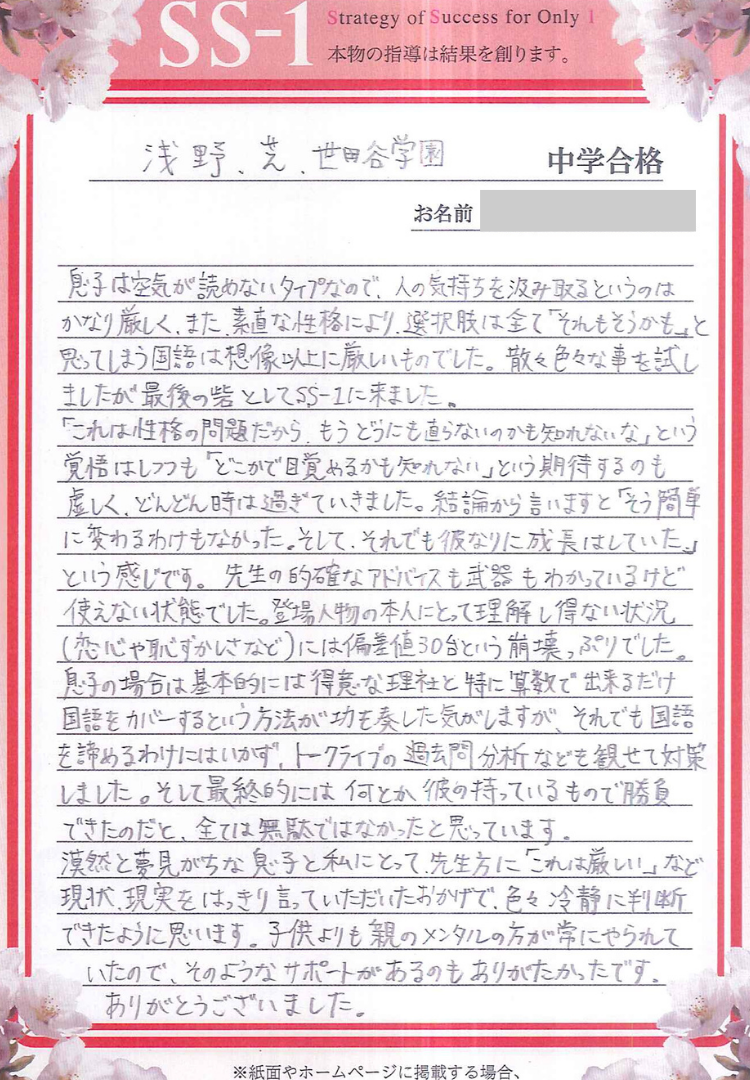 SS-1
Strategy of Success for Only 1
本物の指導は結果を創ります。
浅野、芝、世田谷学園 中学合格
お名前
息子は空気が読めないタイプなので、人の気持ちを汲み取るというのは
かなり厳しく、また、素直な性格により、選択肢は全て「それもそうかも」と
思ってしまう国語は想像以上に厳しいものでした。散々色々な事を試し
ましたが最後の砦としてSS-1に来ました。
「これは性格の問題だから、もうどうにも直らないのかも知れないな」という
覚悟はしつつも「どこかで目覚めるかも知れない」という期待するのも
虚しく、どんどん時は過ぎていきました。結論から言いますと「そう簡単
に変わるわけもなかった。そして、それでも彼なりに成長はしていた。」
という感じです。先生の的確なアドバイスも武器もわかっているけど
使えない状態でした。登場人物の本人にとって理解し得ない状況
(恋心や恥ずかしさなど)には偏差値30台という崩壊っぷりでした。
息子の場合は基本的には得意な理社と特に算数で出来るだけ
国語をカバーするという方法が功も奏した気がしますが、それでも国語
を諦めるわけにはいかず、トークライブの過去問分析なども観せて対策
しました。そして最終的には何とか彼の持っているもので勝負
できたのだと、全ては無駄ではなかったと思っています。
漠然と夢見がちな息子と私にとって、先生方に「これは厳しい」など
現状、現実をはっきり言っていただいたおかげで、色々冷静に判断
できたように思います。子供よりも親のメンタルの方が常にやられて
いたので、そのようなサポートがあるのもありがたかったです。
ありがとうございました。
※紙面やホームページに掲載する場合、